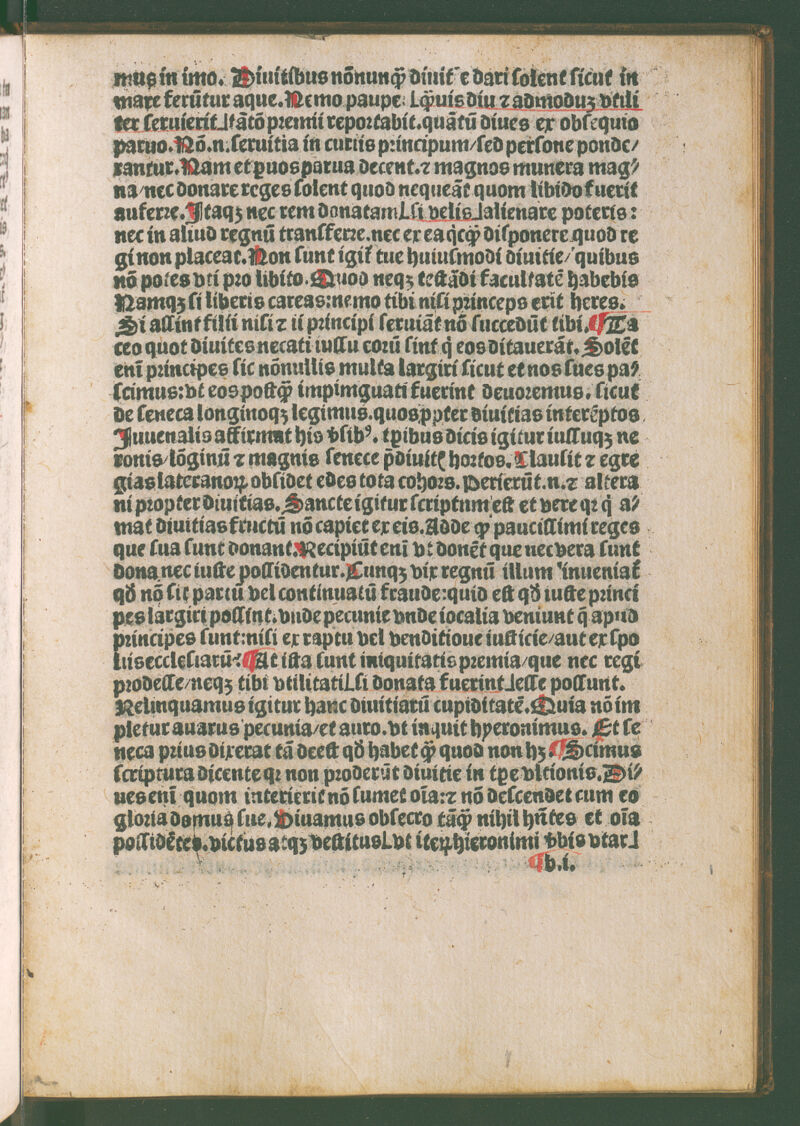 mus in imo. Diuitibus nōnunq̄ diuit᷑ e dari solent sicut in
mare ferūtur aque. Nemo pauper Lq̄uis diu ⁊ admoduꝫ vtili
ter seruierit⅃tātō premii reportabit. quātū diues ex obsequio
paruo. Nō.n. seruitia in curiis principum/sed persone ponde/
rantur. Nam et paruos parua decent. ⁊ magnos munera mag/
na/nec donare reges solent quod nequeāt quom libido fuerit
auferre. Itaqꝫ nec rem donatam Lsi velis⅃alienare poteris:
nec in aliud regnū transferre. nec ex ea q̇cq̄ disponere quod re
gi non placeat. Non sunt igit᷑ tue huiusmodi diuitie/quibus
nō potes vti pro libito. Quod neqꝫ testādi facultatē habebis
Namqꝫ si liberis careas: nemo tibi nisi princeps erit heres.
Si assint filii nisi ⁊ ii principi seruiāt nō succedūt tibi. ¶Ta
ceo quot diuites necati iussu eorū sint q̇ eos ditauerāt. Solēt
eni principes sic nōnullis multa largiri sicut et nos sues pa/
scimus: vt eos postq̄ impimguati fuerint deuoremus. sicut
de seneca longinoqꝫ legimus. quos ꝓpter diuitias interēptos
Iuuenalis affirmat his vsibꝰ. tꝑibus dicis igitur iussuqꝫ ne
ronis/lōginū ⁊ magnis senece p̄diuitꝭ hortos. Clausit ⁊ egre
gias lateranoꝝ obsidet edes tota cohors. Perierūt.n. ⁊ altera
ni propter diuitias. Sancte igitur scriptum est et vere qꝛ q̇ a/
mat diuitias fructū nō capiet ex eis. Adde ꝙ paucissimi reges
que sua sunt donant. Recipiūt eni vt donēt que nec vera sunt
dona nec iuste possidentur. Cunqꝫ vix regnū illum inueniat᷑
qđ nō sit partū vel continuatū fraude: quid est qđ iuste princi
pes largiri possint. vnde pecunie vnde iocalia veniunt q̄ apud
principes sunt: nisi ex raptu vel venditioue iusticie/aut ex spo
liis ecclesiarū? ¶At ista sunt iniquitatis premia/que nec regi
prodesse/neqꝫ tibi vtilitati Lsi donata fuerint⅃esse possunt.
Relinquamus igitur hanc diuitiarū cupiditatē. Quia nō im
pletur auarus pecunia/et auro. vt inquit hyeronimus. Et se
neca prius dixerat tā deest qđ habet q̄ quod non hꝫ ¶Scimus
scriptura dicente qꝛ non proderūt diuitie in tꝑe vltionis. Di/
ues eni quom interierit nō sumet oīa: ⁊ nō descendet cum eo
gloria domus sue. Viuamus obsecro tāq̄ nihil hn̄tes et oīa
possidētes. victus atqꝫ vestitus Lvt iteꝝ hieronimi vbis vtar⅃
¶b.i.